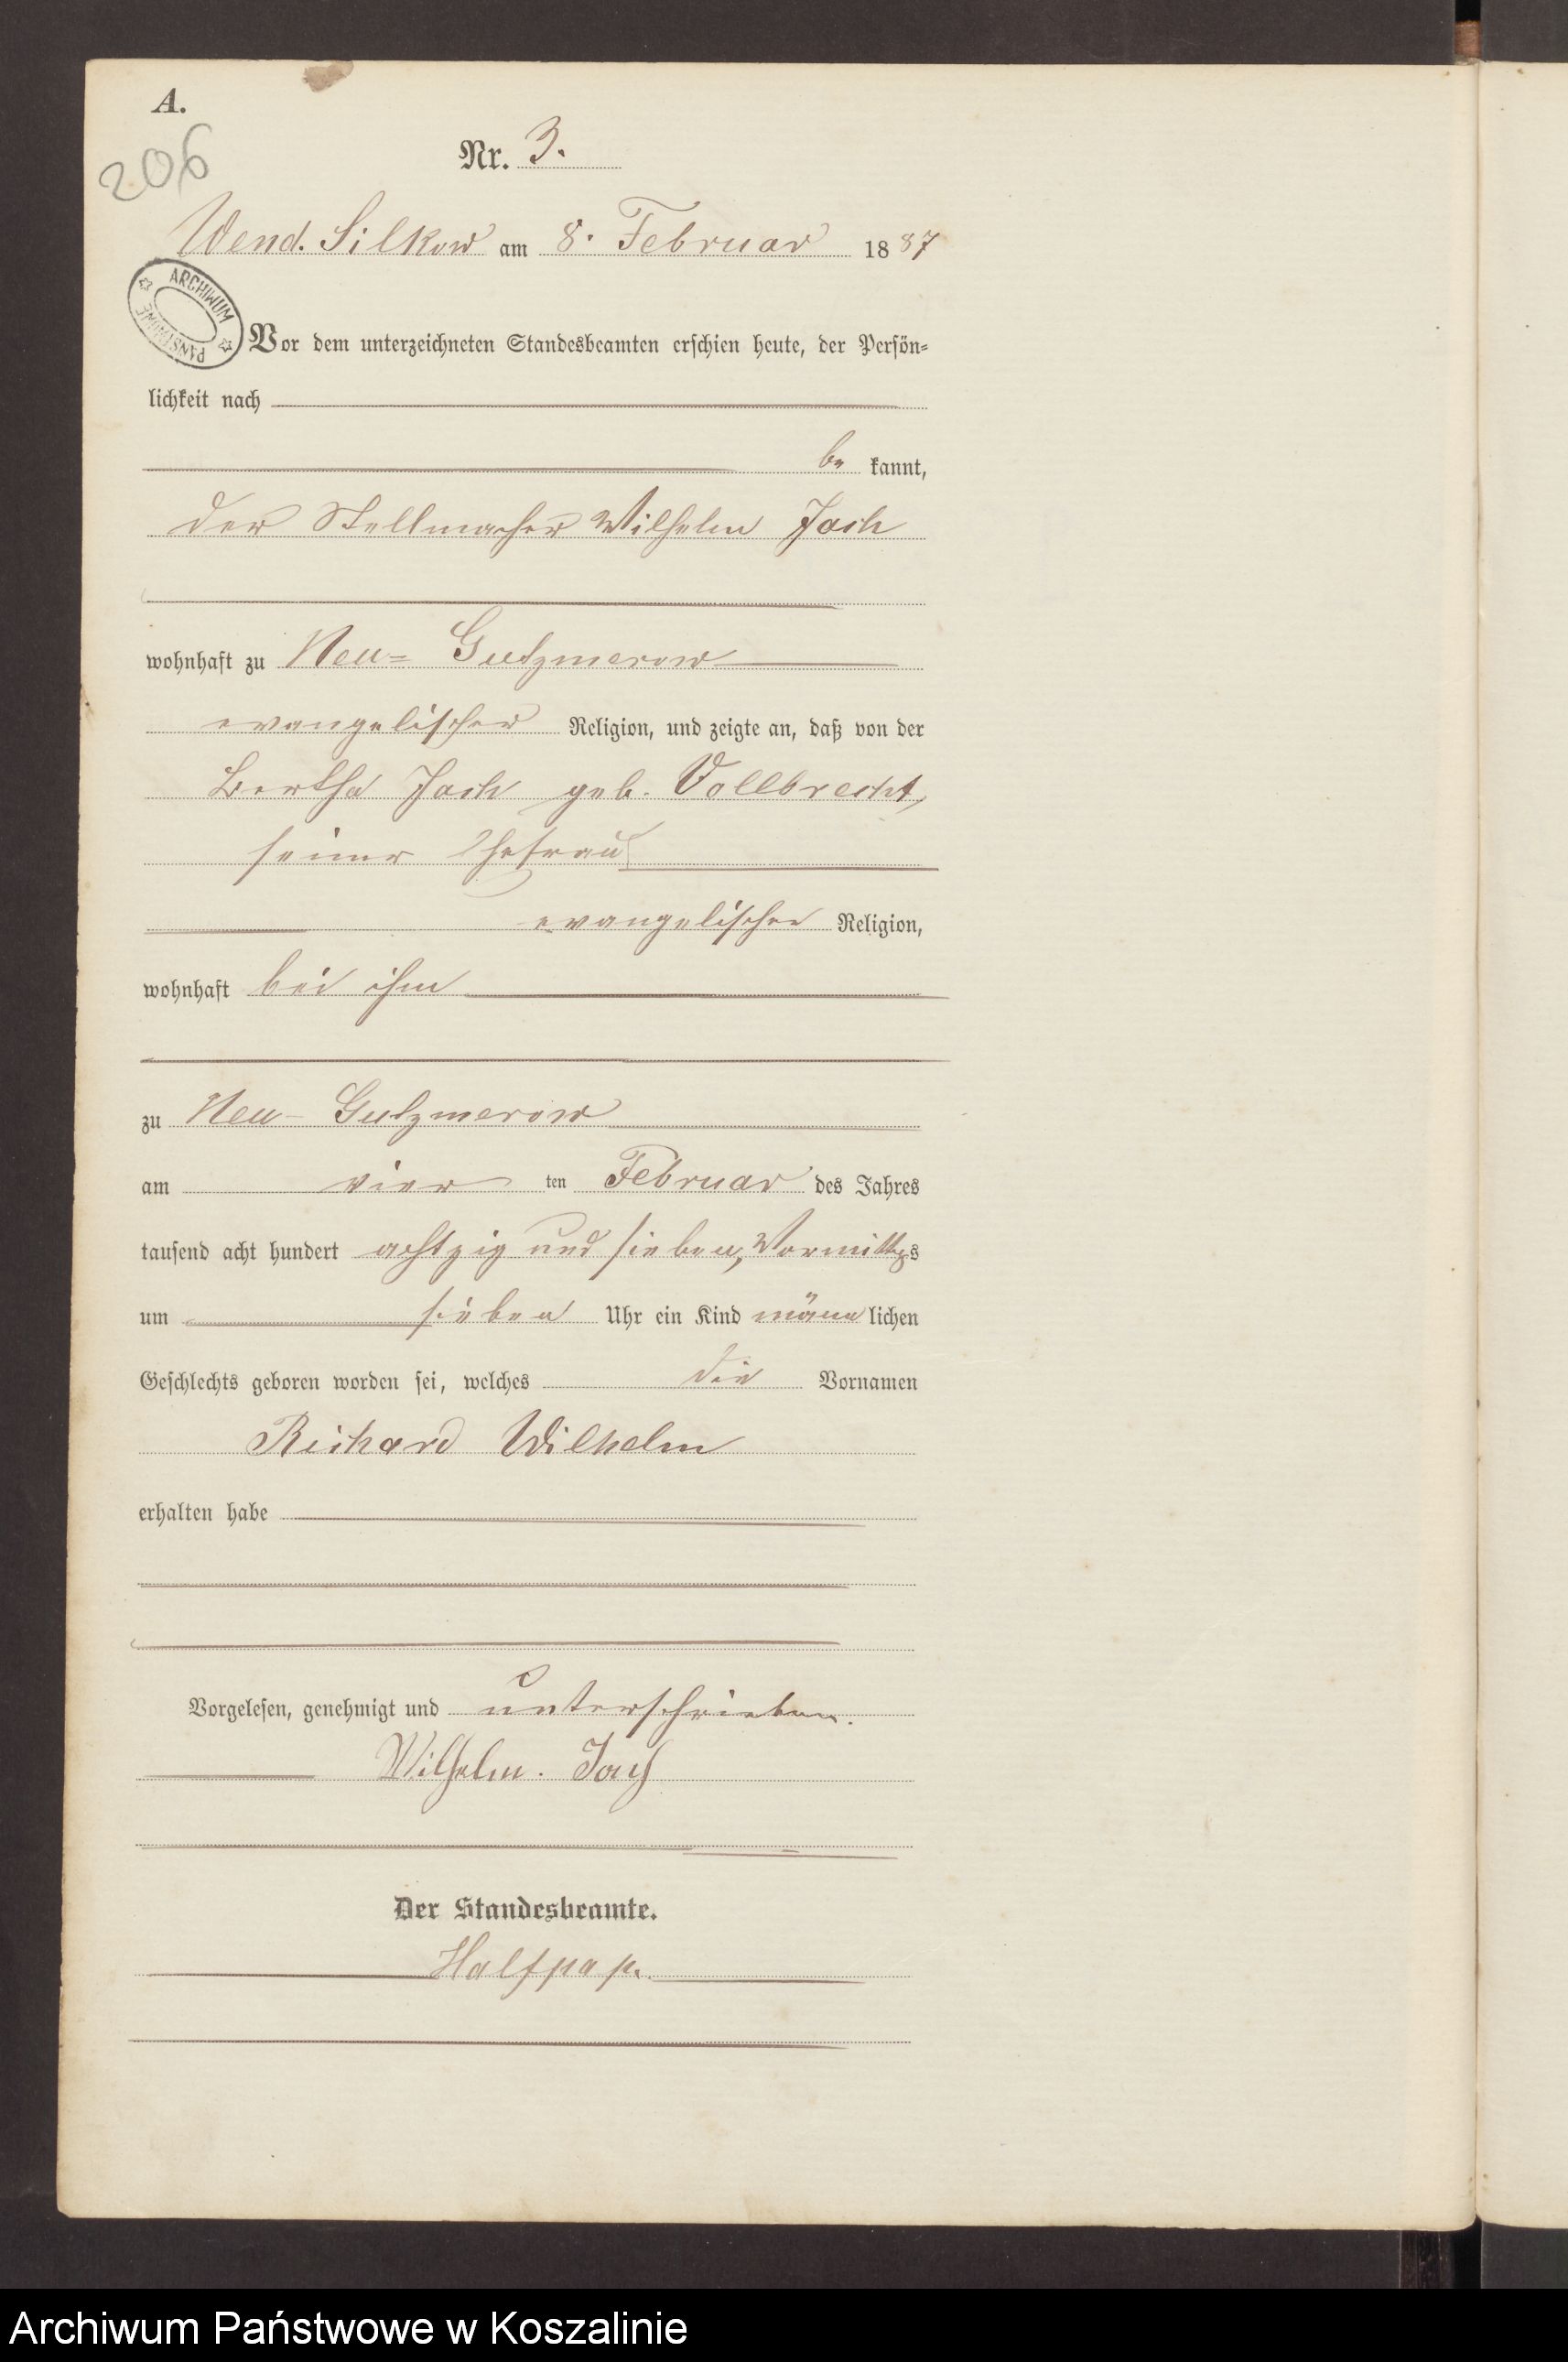 A.
206
Nr. 3.
Wend. Silkow am 8. Februar 1887
ARCHIWUM PAŃSTWOWE
Vor dem unterzeichneten Standesbeamten erschien heute, der Persön-
lichkeit nach
be kannt,
der Stellmacher Wilhelm Jach
wohnhaft zu Neu= Gutzmerow
evangelischer Religion, und zeigte an, daß von der
Bertha Jach geb. Vollbrecht,
seiner Ehefrau
evangelischer Religion,
wohnhaft bei ihm
zu Neu- Gutzmerow
am vier ten Februar des Jahres
tausend acht hundert achtzig und sieben, Vormittgs
um sieben Uhr ein Kind männlichen
Geschlechts geboren worden sei, welches die Vornamen
Richard Wilhelm
erhalten habe
Vorgelesen, genehmigt und unterschrieben.
Wilhelm. Jach
Der Standesbeamte.
Halfpap.
Archiwum Państwowe w Koszalinie